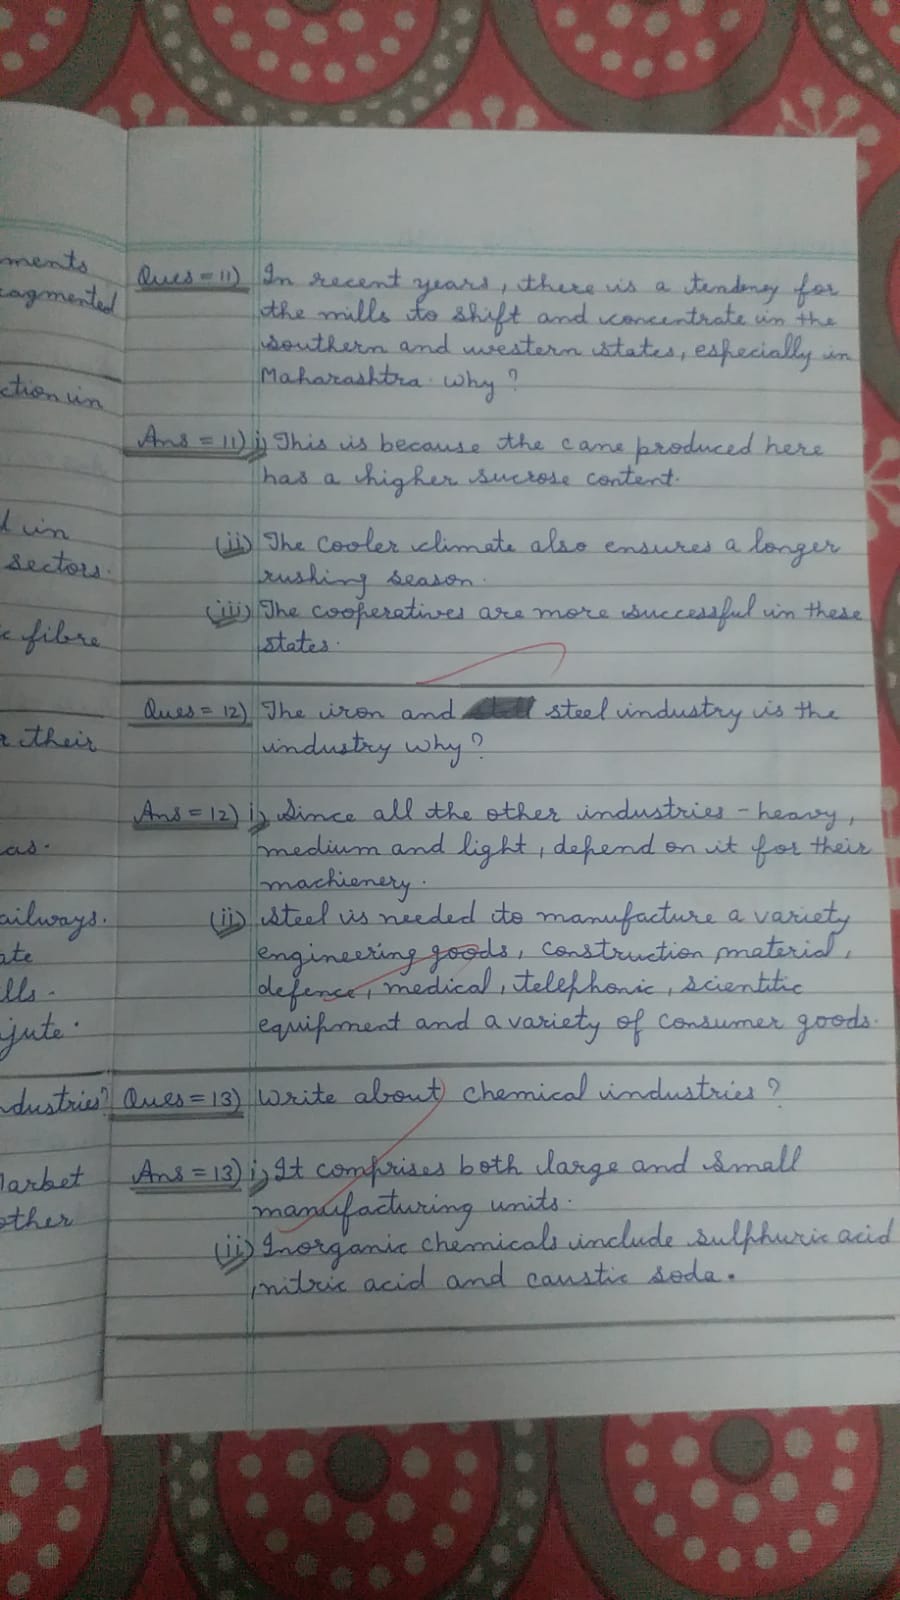 ments
ragmented
ction in
d in
sectors.
c fibre
r their
as.
ailways.
ate
lls.
jute.
ndustries?
Market
other
Ques = 11) In recent years, there is a tendney for
the mills to shift and concentrate in the
southern and western states, especially in
Maharashtra. Why?
Ans = 11) i) This is because the cane produced here
has a higher sucrose content.
(ii) The cooler climate also ensures a longer
rushing season.
(iii) The cooperatives are more successful in these
states.
Ques = 12) The iron and steel industry is the
industry why?
Ans = 12) i) Since all the other industries - heavy,
medium and light, depend on it for their
machienery.
(ii) steel is needed to manufacture a variety
engineering goods, construction material,
defence, medical, telephonic, scientitic
equipment and a variety of consumer goods.
Ques = 13) Write about chemical industries?
Ans = 13) i) It comprises both large and small
manufacturing units.
(ii) Inorganic chemicals include sulphuric acid
,nitric acid and caustic soda.